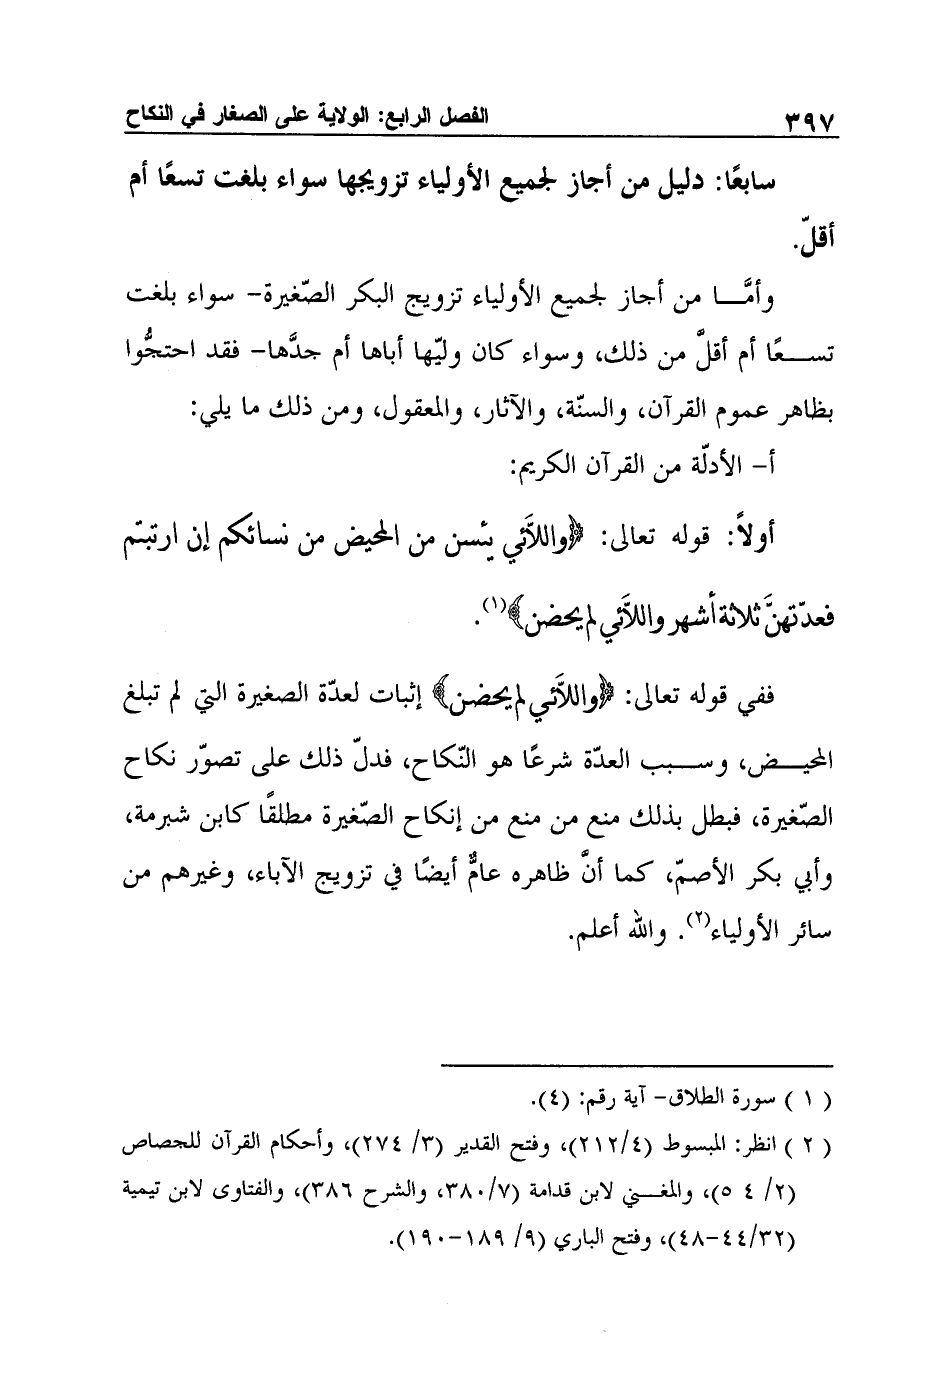 ٣٩٧
الفصل الرابع: الولاية على الصغار في النكاح
سابعًا: دليل من أجاز لجميع الأولياء تزويجها سواء بلغت تسعًا أم
أقلّ.
وأمَّـا من أجاز لجميع الأولياء تزويج البكر الصّغيرة- سواء بلغت
تسـعًا أم أقلَّ من ذلك، وسواء كان وليّها أباها أم جدَّها- فقد احتجُّوا
بظاهر عموم القرآن، والسنّة، والآثار، والمعقول، ومن ذلك ما يلي:
أ- الأدلّة من القرآن الكريم:
أولاً: قوله تعالى: ﴿واللاَّئي يئسن من المحيض من نسائكم إن ارتبتم
فعدّتهنَّ ثلاثة أشهر واللاَّئي لم يحضن﴾(١).
ففي قوله تعالى: ﴿واللاَّئي لم يحضن﴾ إثبات لعدّة الصغيرة التي لم تبلغ
المحيـض، وسـبب العدّة شرعًا هو النّكاح، فدلّ ذلك على تصوّر نكاح
الصّغيرة، فبطل بذلك منع من منع من إنكاح الصّغيرة مطلقًا كابن شبرمة،
وأبي بكر الأصمّ، كما أنَّ ظاهره عامٌّ أيضًا في تزويج الآباء، وغيرهم من
سائر الأولياء(٢). والله أعلم.
( ١ ) سورة الطلاق- آية رقم: (٤).
( ٢ ) انظر: المبسوط (٢١٢/٤)، وفتح القدير (٣/ ٢٧٤)، وأحكام القرآن للجصاص
(٢/ ٤ ٥)، والمغـني لابن قدامة (٣٨٠/٧، والشرح ٣٨٦)، والفتاوى لابن تيمية
(٤٤/٣٢-٤٨)، وفتح الباري (٩/ ١٨٩-١٩٠).